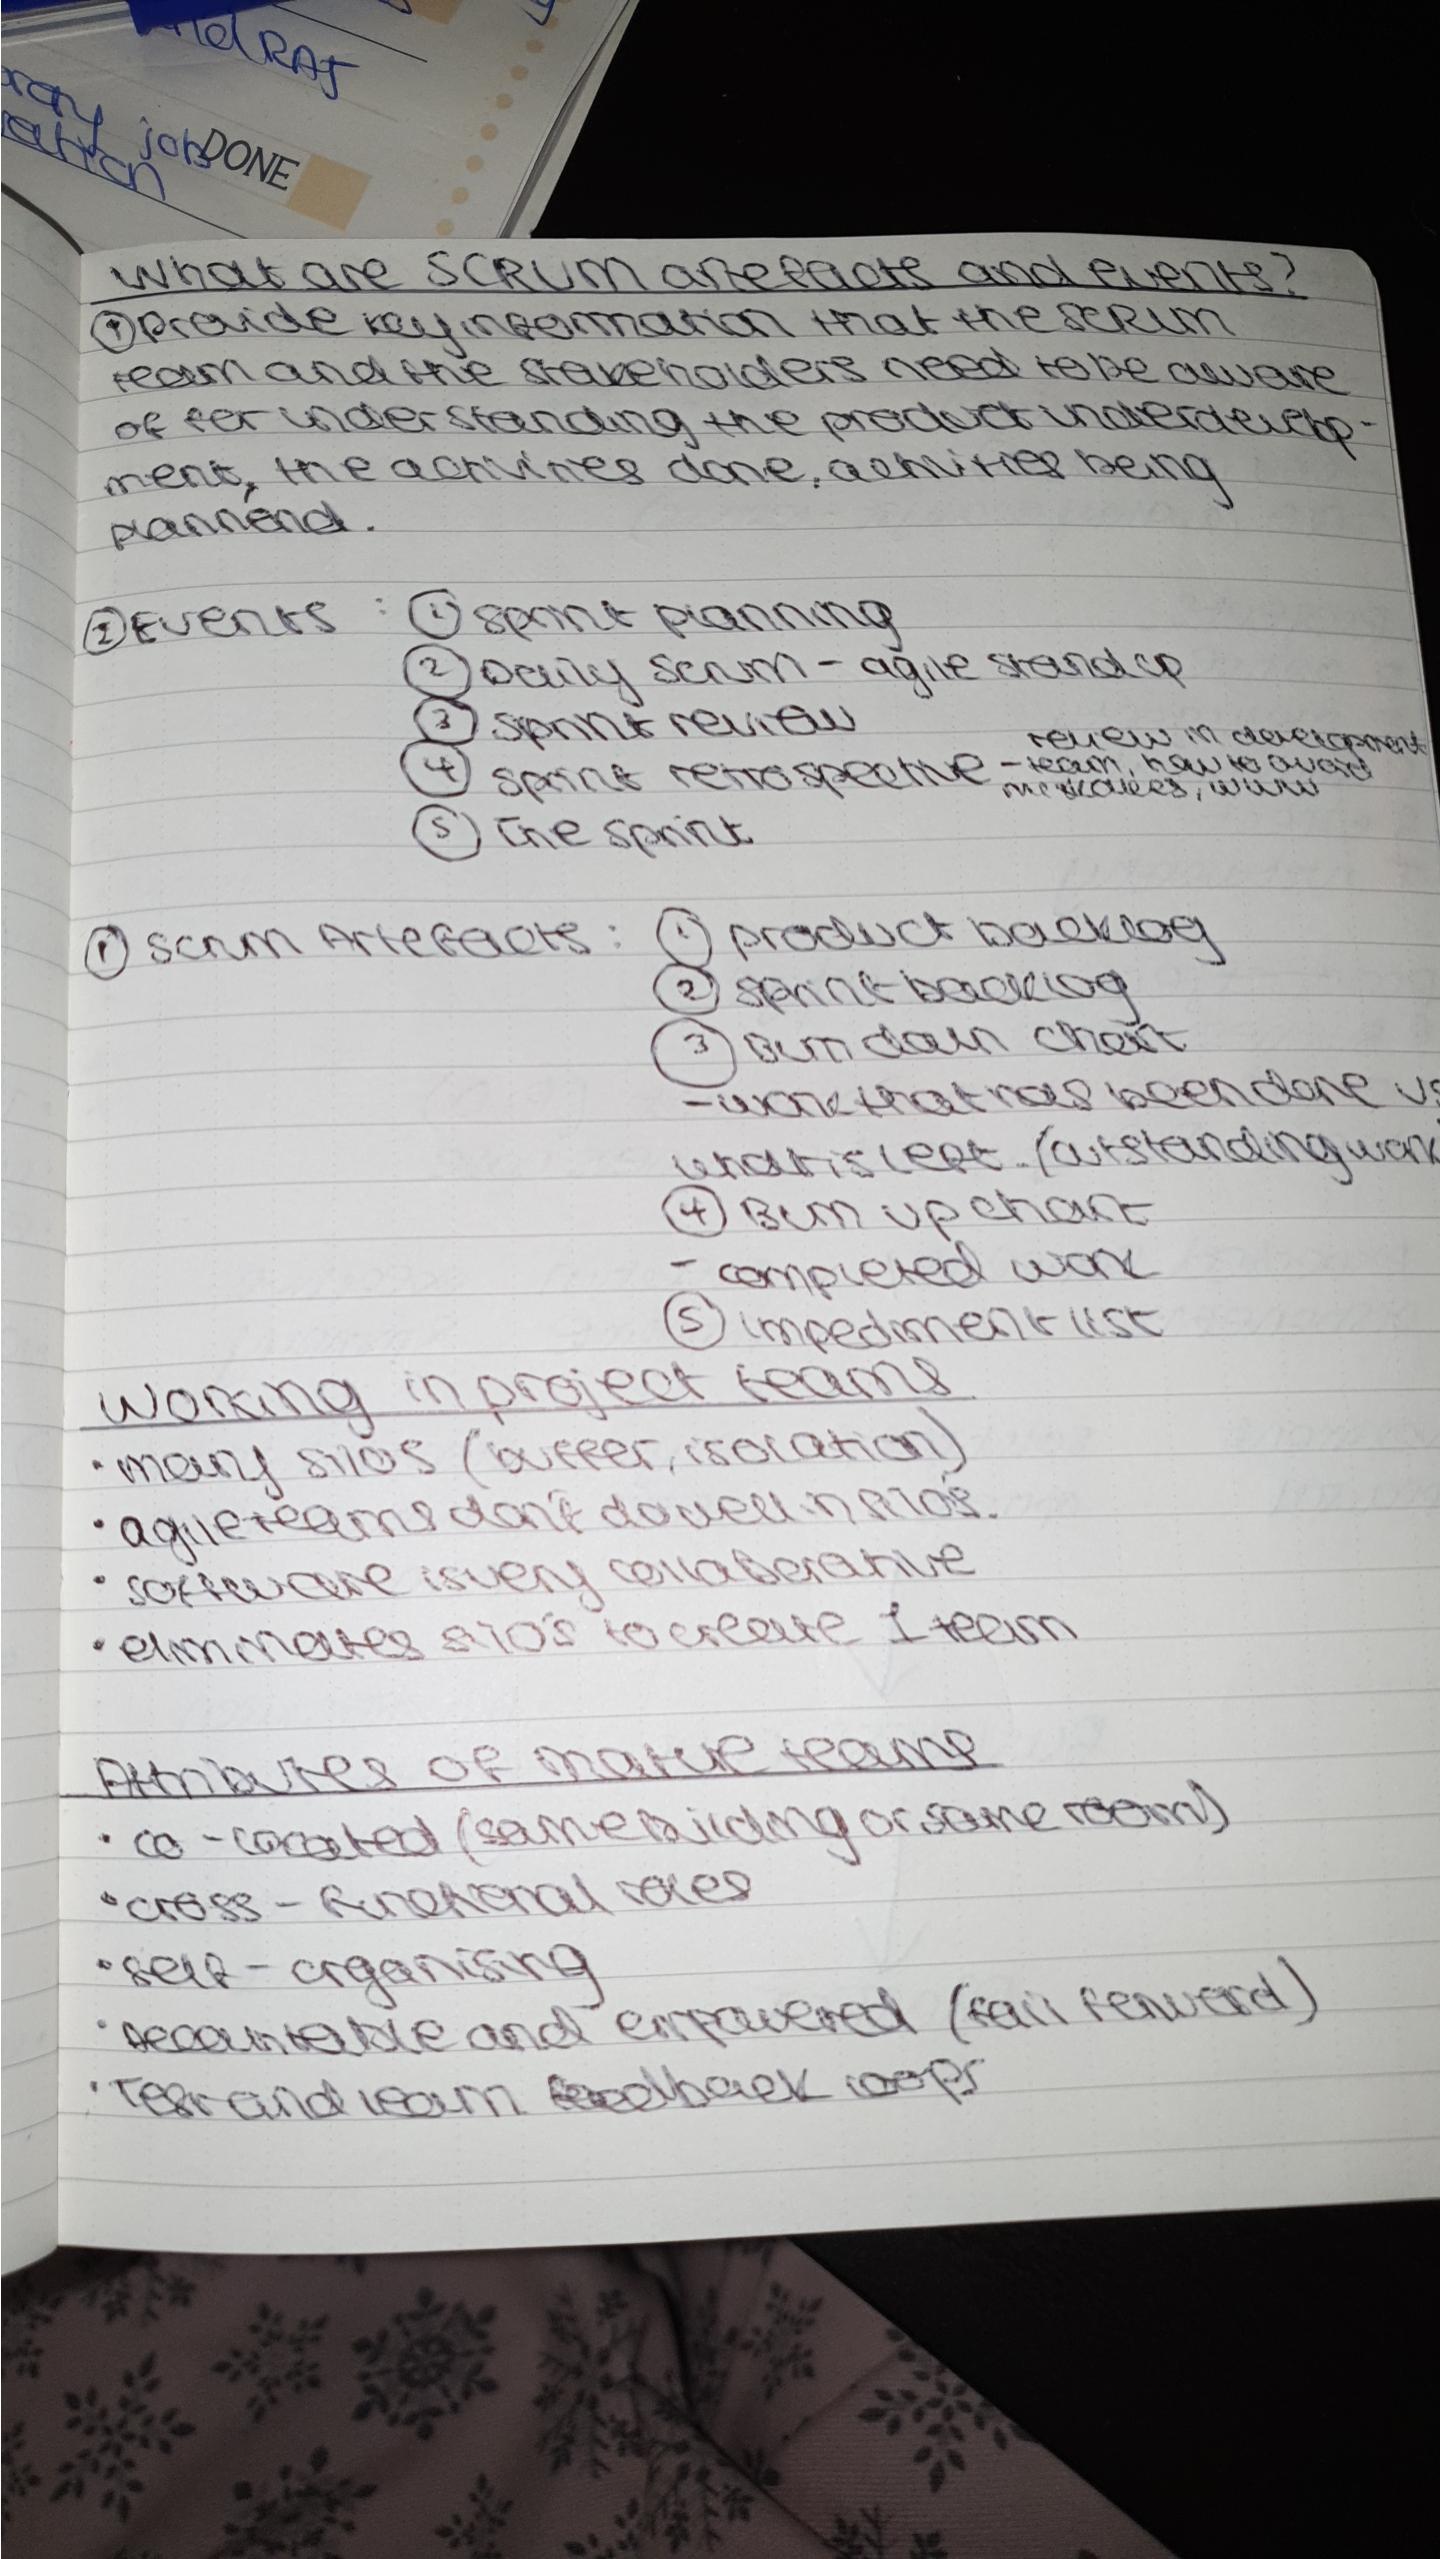 nd RAJ
job DONE
What are SCRUM artefacts and events?
① Provide key information that the SCRUM
team and the stakeholders need to be aware
of for understanding the product underdevelop-
ment, the activities done, activities being
plannend.
② Events : ① sprint planning
② Daily scrum - agile stand up
③ sprint review
④ sprint retrospective - review in development
team, how to avoid
mistakes, www
⑤ The sprint
① Scrum Artefacts : ① product backlog
② sprint backlog
③ Burn down chart
- work that has been done vs
what is left. (outstanding work
④ Burn up chart
- completed work
⑤ impediment list
Working in project teams
• many silos (buffer, isolation)
• agile teams don't dowell in silo's.
• software is very collaberative
• eliminates silo's to create 1 team
Attributes of mature teams
• co-located (same building or same room)
• cross-functional roles
• self-organising
• Accountable and empowered (fail forward)
• Test and learn feedback loops